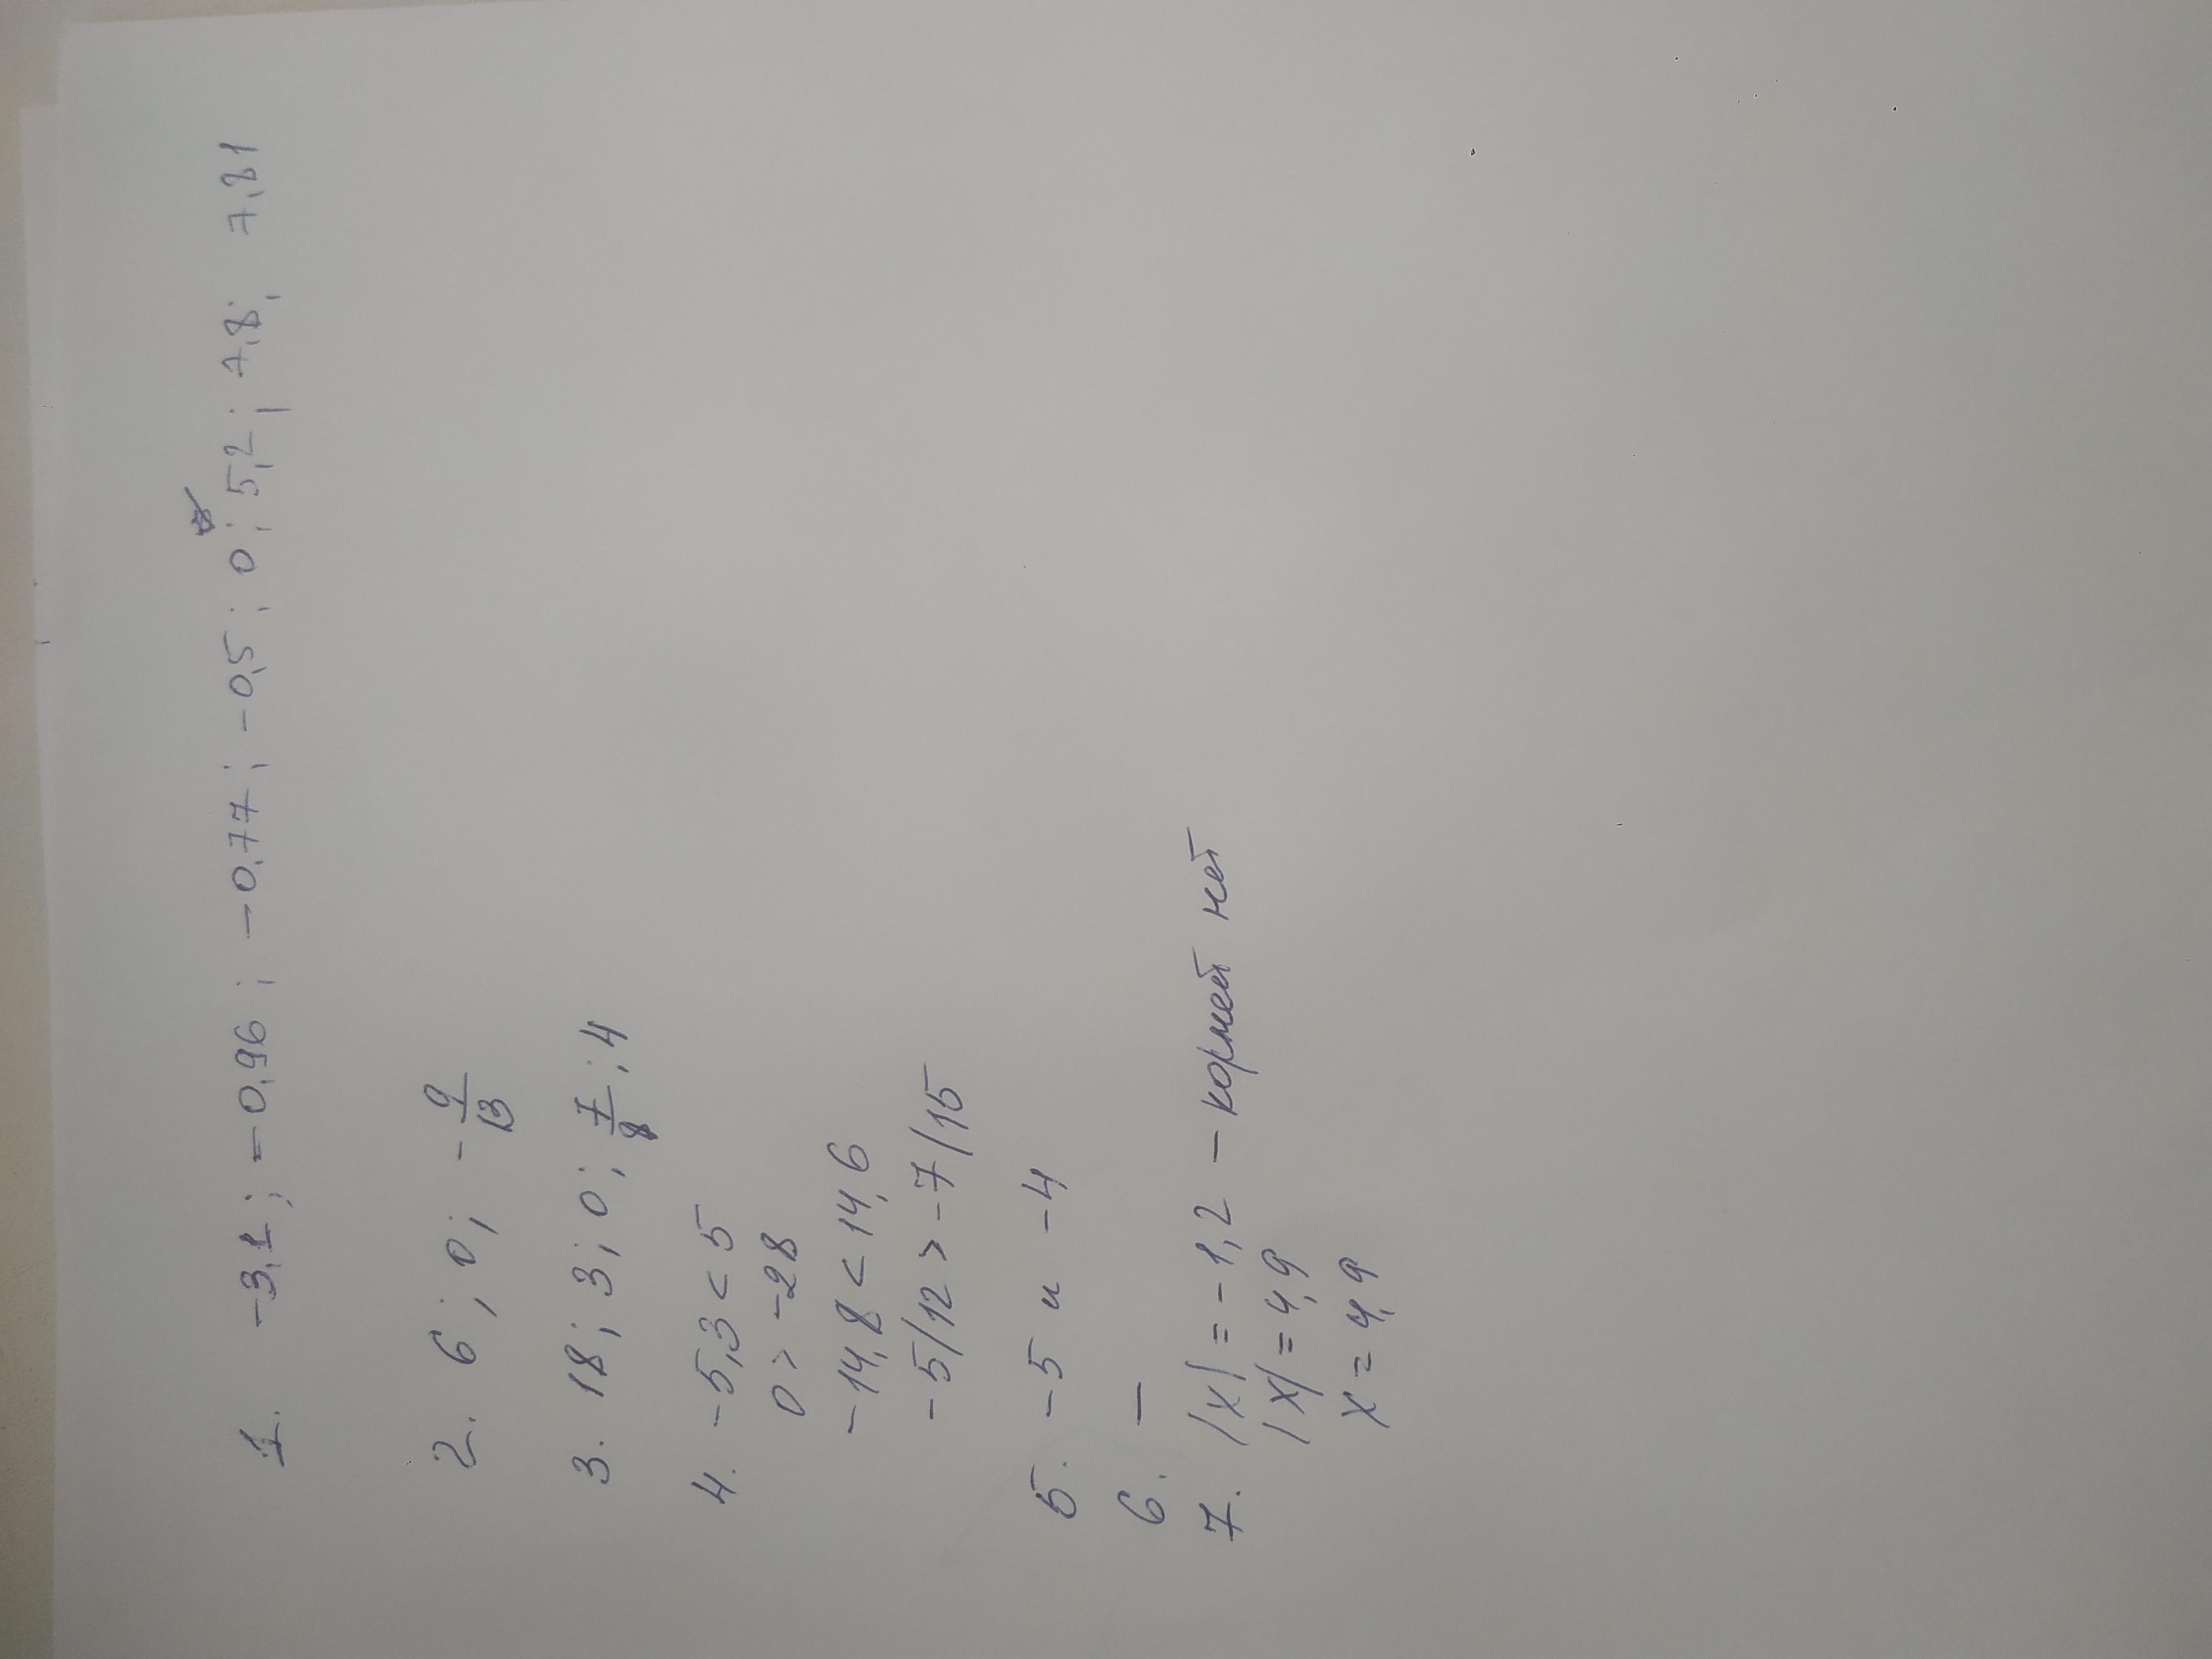 1. -3,1; -0,96; -0,77; -0,5; 0; 5,2; 7,8; 7,81
2. 6; 0; -9/13
3. 18; 3; 0; 7/8; 4
4. -5,3 < 5
0 > -28
-14,8 < 14,6
-5/12 > -7/15
5. -5 и -4
6. —
7. |x| = -1,2 - корней нет
|x| = 4,9
x = 4,9